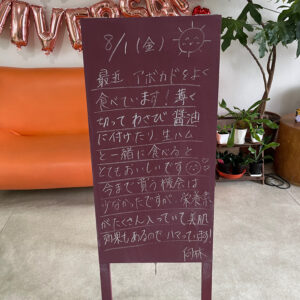 8/1(金)
最近 アボカドをよく
食べています!薄く
切って わさび醤油
に付けたり 生ハム
と一緒に食べると
とてもおいしいです
今まで買う機会は
少なかったですが、栄養素
がたくさん入っていて美肌
効果もあるので ハマっています!